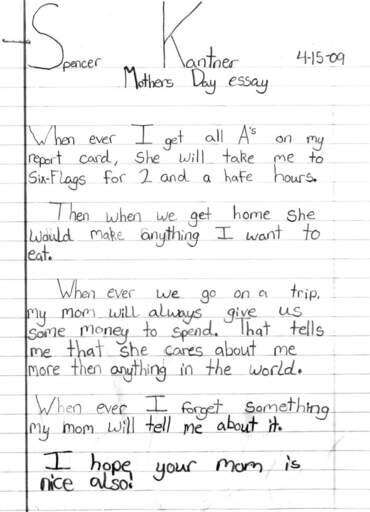 Spencer Kantner 4-15-09
Mothers Day essay
When ever I get all A's on my
report card, she will take me to
Six-Flags for 2 and a hafe hours.
Then when we get home she
would make anything I want to
eat.
When ever we go on a trip,
my mom will always give us
some money to spend. That tells
me that she cares about me
more then anything in the world.
When ever I forget something
my mom will tell me about it.
I hope your mom is
nice also!